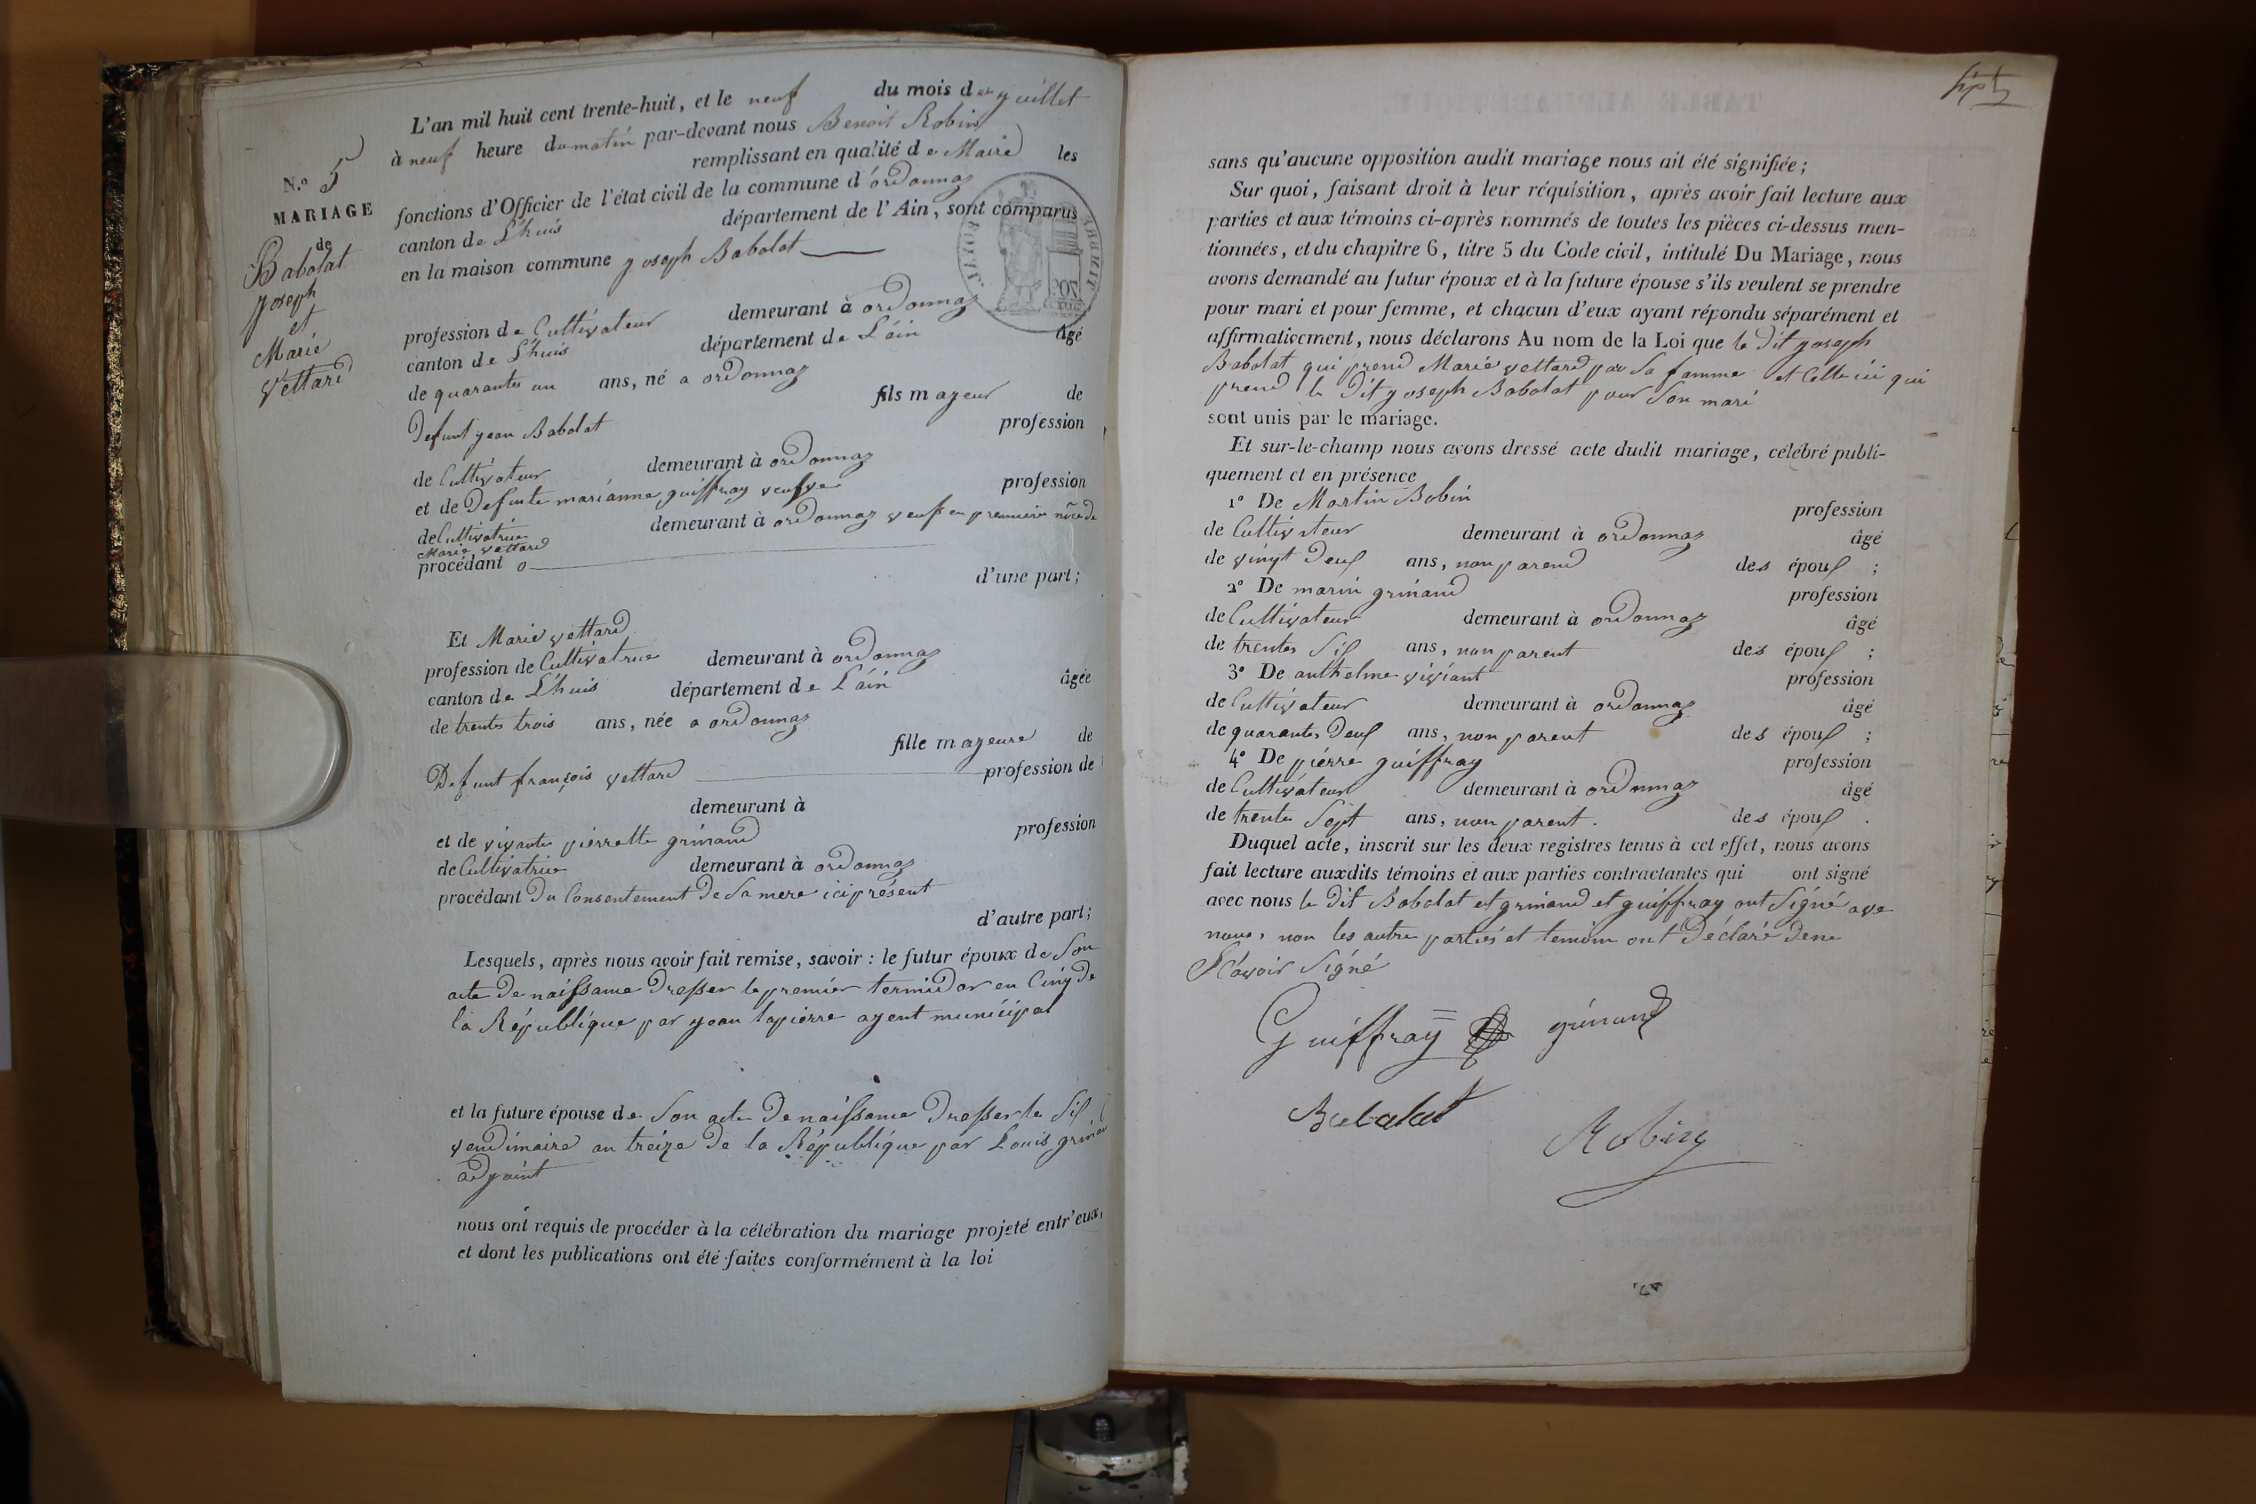 N.o 5
MARIAGE
de
Babolat
joseph
et
Marie
vettard
L'an mil huit cent trente-huit, et le neuf du mois de juillet
à neuf heure du matin par-devant nous Benoit Robin
remplissant en qualité de Maire les
fonctions d'Officier de l'état civil de la commune d'ordonnaz
canton de L'huis département de l'Ain, sont comparus
en la maison commune joseph Babolat
profession de Cultivateur demeurant à ordonnaz
canton de L'huis département de L'ain âgé
de quarantes un ans, né a ordonnaz
fils mayeur de
Defunt jean Babolat profession
de Cultivateur demeurant à ordonnaz
et de Defunte marianne guiffray veufve profession
de Cultivatrice demeurant à ordonnaz veuf en premiere de
Marie vettard
procédant o
d'une part;
Et Marie vettard
profession de Cultivatrice demeurant à ordonnaz
canton de L'huis département de L'ain âgée
de trentes trois ans, née a ordonnaz
fille mayeure de
Defunt françois vettard profession de
demeurant à
et de vivante pierrette grinand profession
de Cultivatrice demeurant à ordonnaz
procédant Du Consentement De Sa mere ici présent
d'autre part;
Lesquels, après nous avoir fait remise, savoir : le futur époux de Son
acte De naissance Dresser le premier termidor en Cinq de
la République par jean lapierre agent municipal
et la future épouse de Son acte De naissance Dresser le Sis
vendimaire an treize De la République par Louis
adjoint
nous ont requis de procéder à la célébration du mariage projeté entr'eux,
et dont les publications ont été faites conformément à la loi
sept
sans qu'aucune opposition audit mariage nous ait été signifiée;
Sur quoi, faisant droit à leur réquisition, après avoir fait lecture aux
parties et aux témoins ci-après nommés de toutes les pièces ci-dessus men-
tionnées, et du chapitre 6, titre 5 du Code civil, intitulé Du Mariage, nous
avons demandé au futur époux et à la future épouse s'ils veulent se prendre
pour mari et pour femme, et chacun d'eux ayant répondu séparément et
affirmativement, nous déclarons Au nom de la Loi que le Dit joseph
Babolat qui prend Marie vettard par Sa famme et Celle ici qui
prend le Dit joseph Babolat pour Son mari
sont unis par le mariage.
Et sur-le-champ nous avons dressé acte dudit mariage, célébré publi-
quement et en présence
1° De Martin Bobin profession
de Cultivateur demeurant à ordonnaz âgé
de vingt Deus ans, non parend des épous ;
2° De marin grinand profession
de Cultivateur demeurant à ordonnaz âgé
de trentes Sis ans, non parent des épous ;
3° De anthelme viviant profession
de Cultivateur demeurant à ordonnaz âgé
de quarantes Deus ans, non parent des épous ;
4° De pierre guiffray profession
de Cultivateur demeurant à ordonnaz âgé
de trente Sept ans, non parent. des épous .
Duquel acte, inscrit sur les deux registres tenus à cet effet, nous avons
fait lecture auxdits témoins et aux parties contractantes qui ont signé
avec nous le Dit Babolat et grinand et guiffray ont Signé ave
nous, non les autre parties et temoin ont Déclaré De ne
Scavoir Signé
Guiffray grinand
Babalat
Robin